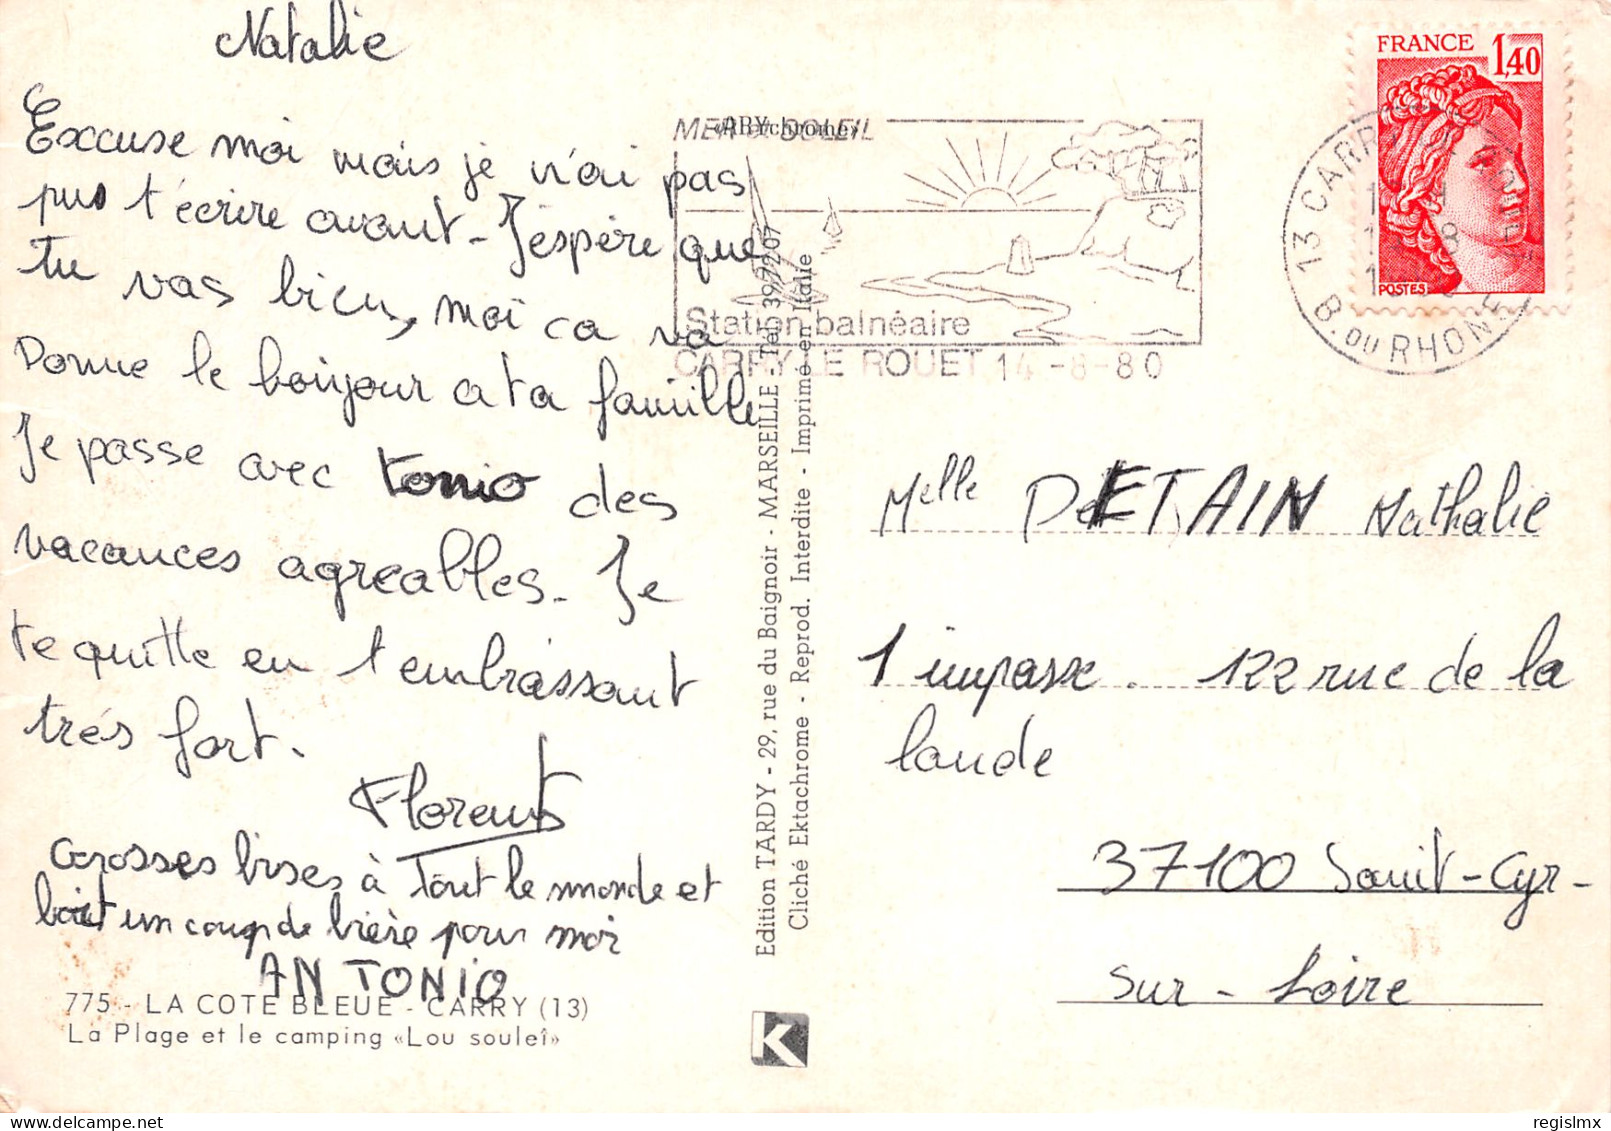 Natalie
Excuse moi mais je n'ai pas
pus t'écrire avant - J'éspère que
tu vas bien, moi ca va
Donne le bonjour a ta famille
Je passe avec tonio des
vacances agreables - Je
te quitte en t'embrassant
trés fort.
Florent
Grosses bises à Tout le monde et
boit un coup de bière pour moi
ANTONIO
775 - LA COTE BLEUE - CARRY (13)
La Plage et le camping «Lou souleî»
Edition TARDY - 29, rue du Baignoir - MARSEILLE - Tél. 39/72.07
Cliché Ektachrome - Reprod. Interdite - Imprimé en Italie
K
MER SOLEIL
Station balnéaire
CARRY LE ROUET 14-8-80
FRANCE 1,40
POSTES
13 CARRY
B. DU RHONE
Melle DETAIN Nathalie
1 impasse. 122 rue de la
lande
37100 Saint-Cyr-
sur-Loire
regislmx